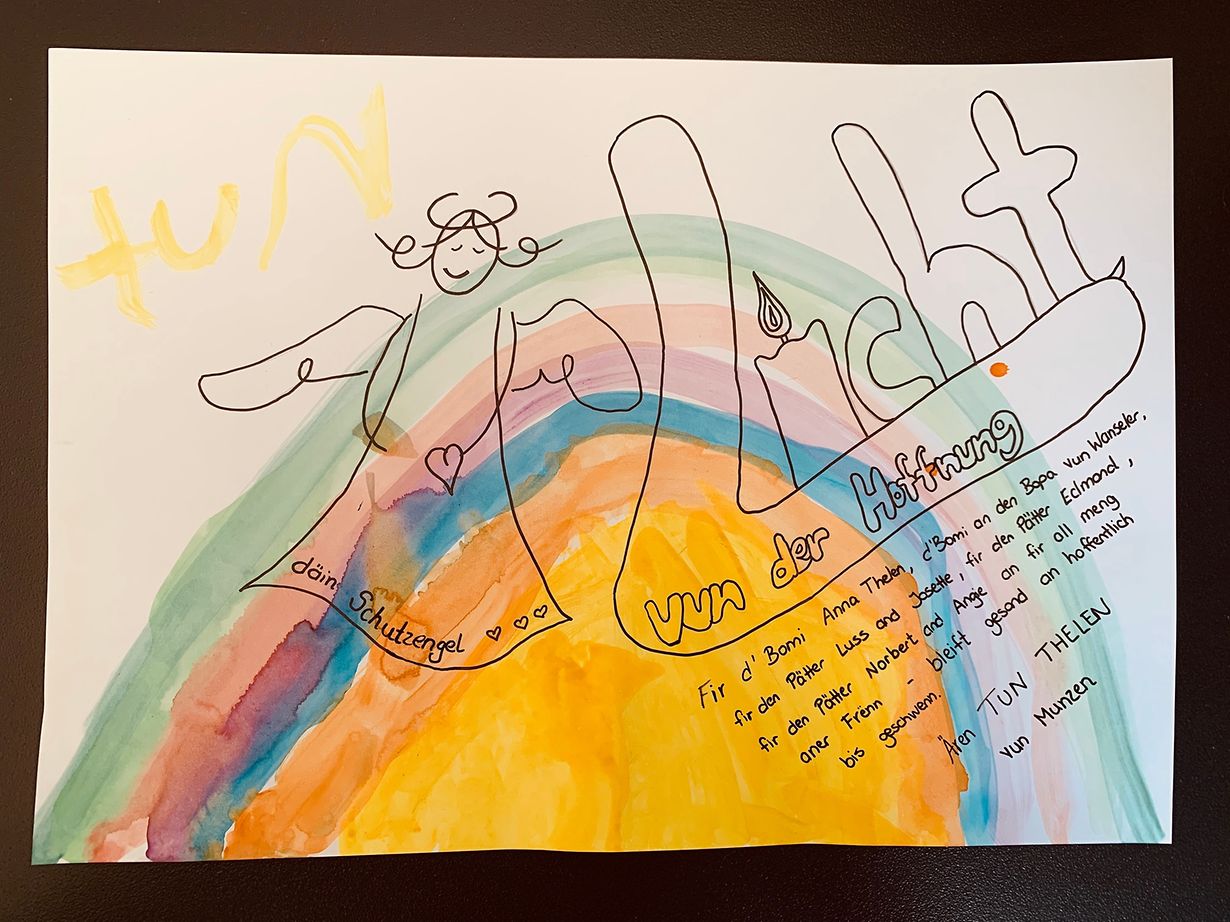 tUN
Licht
vun der Hoffnung
däin
Schutzengel
Fir d'Bomi Anna Thelen, d'Bomi an den Bopa vun Wanseler,
fir den Pätter Luss and Josette, fir den Pätter Edmond,
fir den Pätter Norbert and Ange an fir all meng
aner Frënn - bleift gesond an hoffentlich
bis geschwenn.
Ären TUN THELEN
vun Munzen